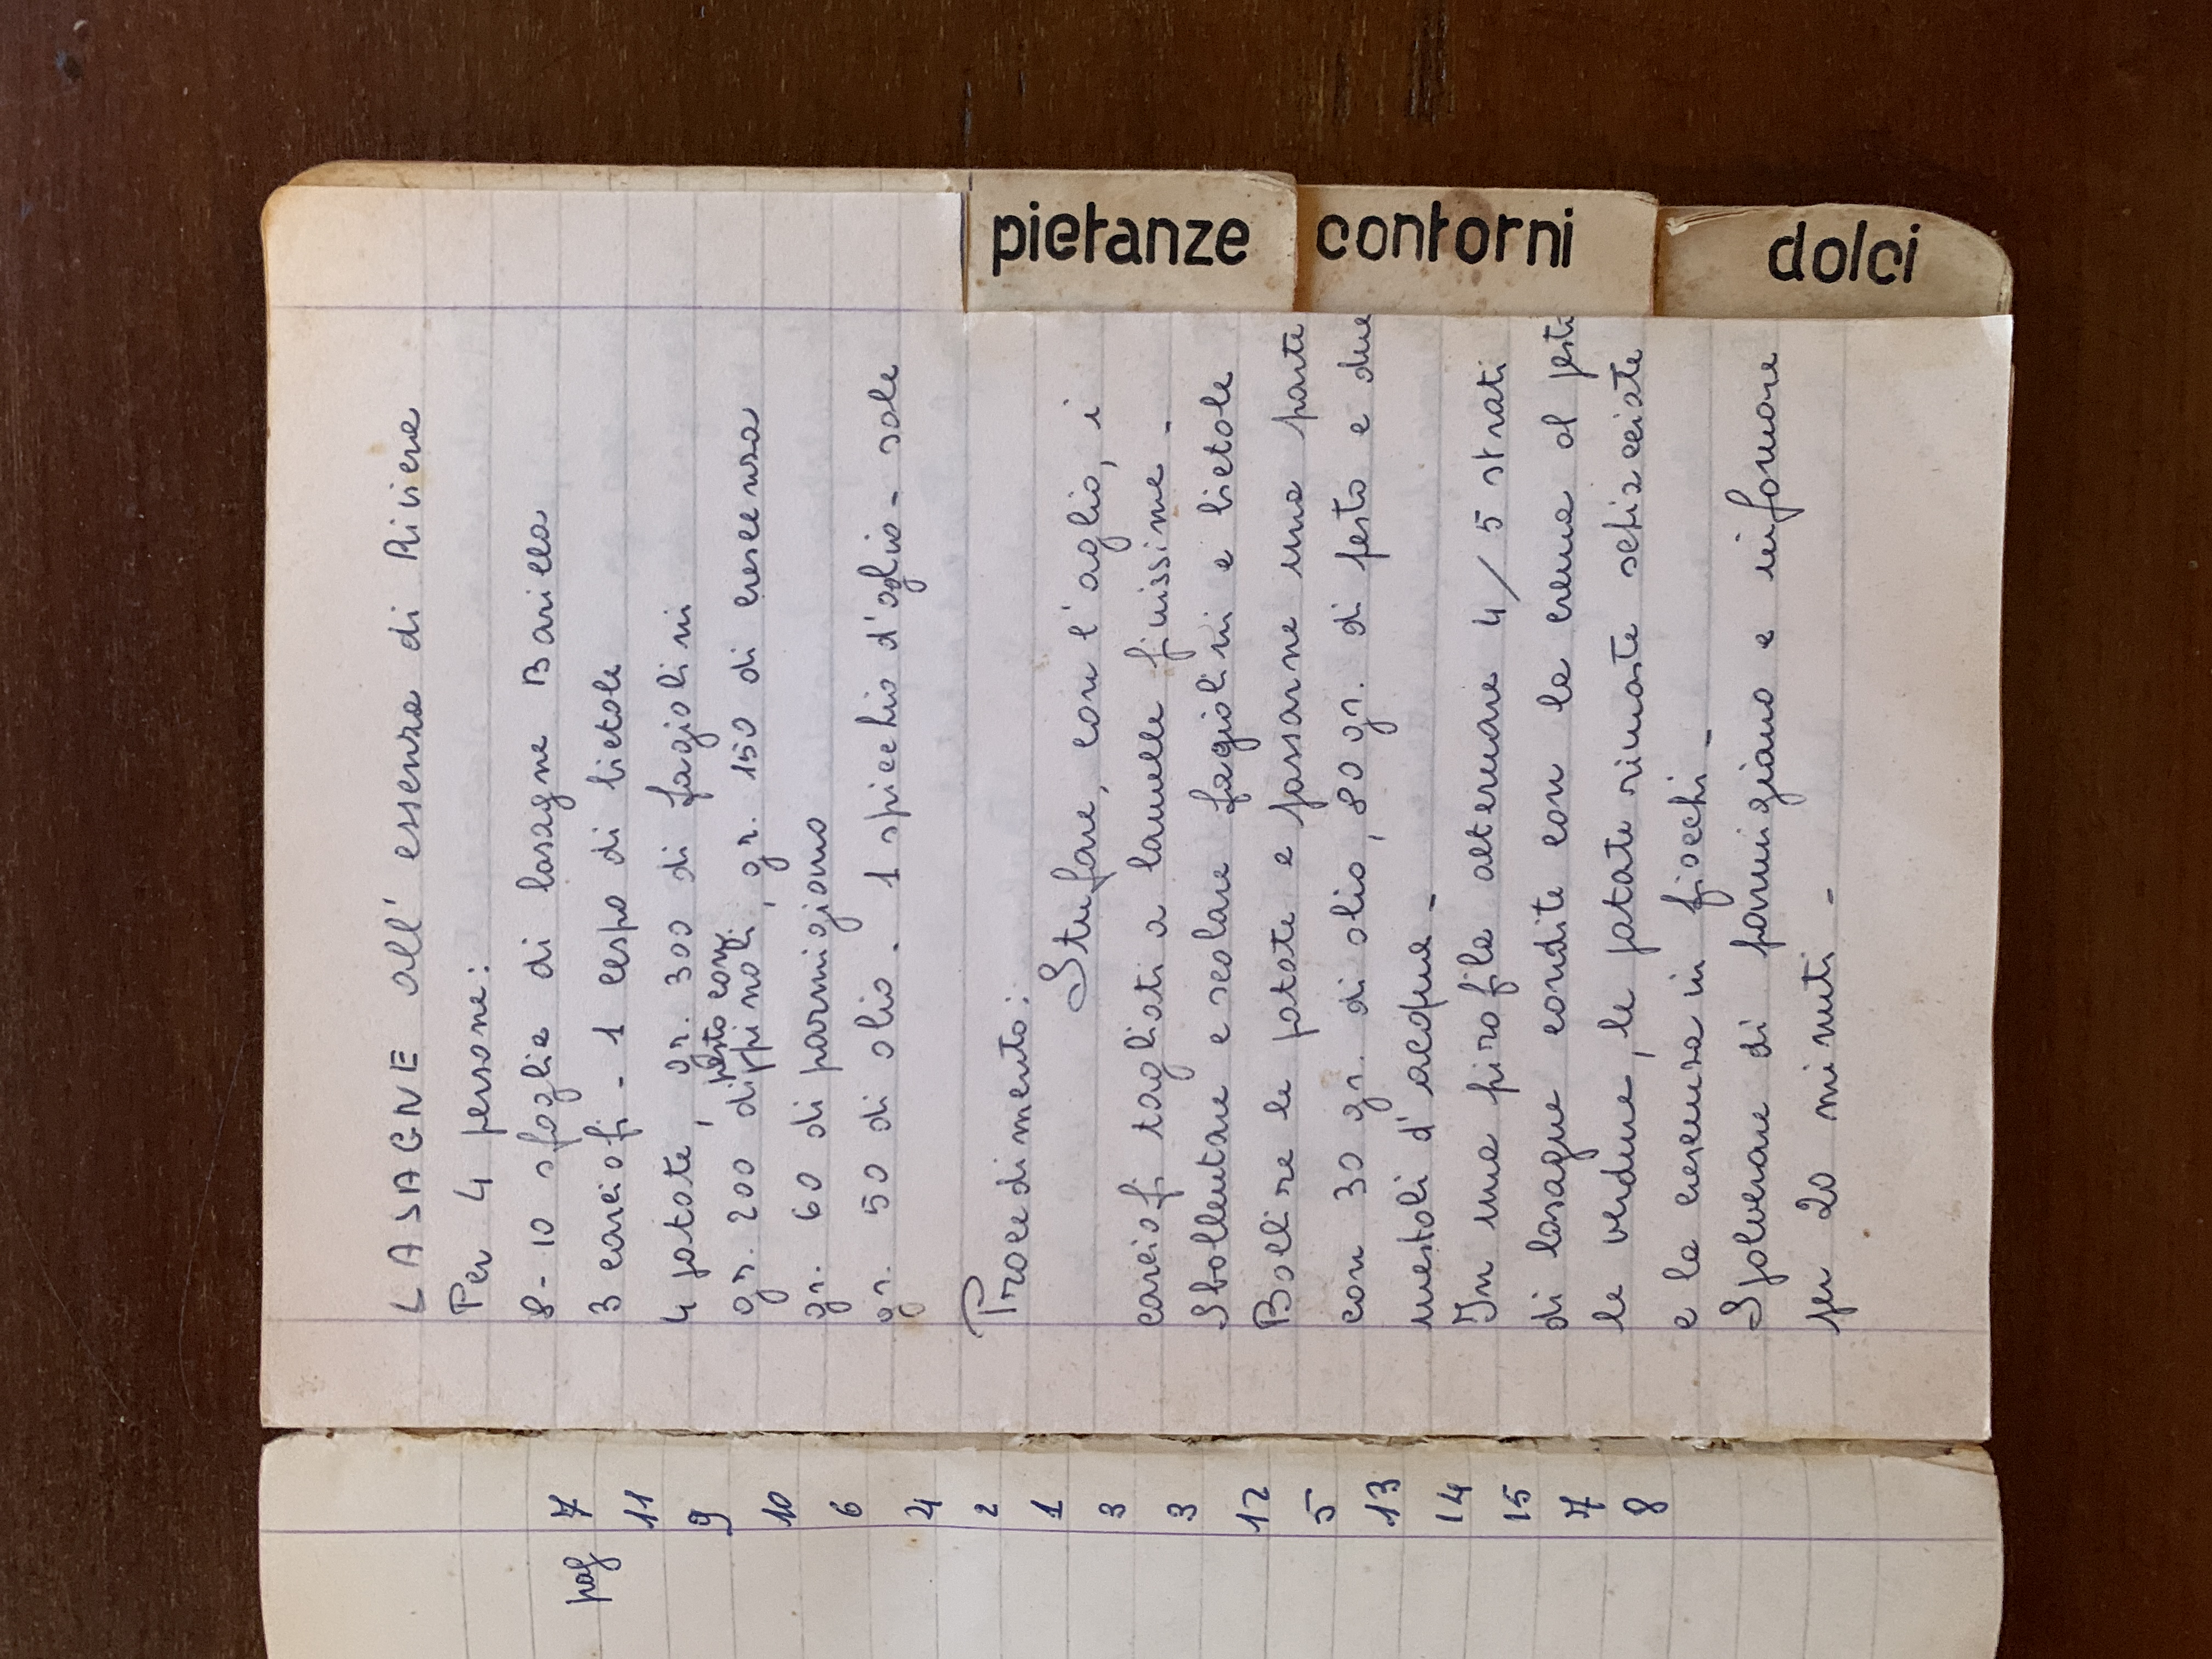 pag 7
11
9
10
6
4
2
1
3
3
12
5
13
14
15
7
8
LASAGNE all' essenza di Riviera
Per 4 persone:
8-10 sfoglie di lasagne Barilla
3 carciofi - 1 cespo di bietole
4 patate, gr. 300 di fagiolini
pesto con
gr. 200 di pinoli, gr. 150 di crescenza
gr. 60 di parmigiano
gr. 50 di olio. 1 spicchio d'aglio - sale
Procedimento:
Stufare, con l'aglio, i
carciofi tagliati a lamelle finissime -
Sbollentare e scolare fagiolini e bietole
Bollire le patate e passarne una parte
con 30 gr. di olio, 80 gr. di pesto e due
mestoli d'acqua -
In una pirofila alternare 4/5 strati
di lasagne condite con la crema al pesto
le verdure, le patate rimaste schiacciate
e la crescenza in fiocchi -
Spolverare di parmigiano e infornare
per 20 minuti -
pietanze
contorni
dolci